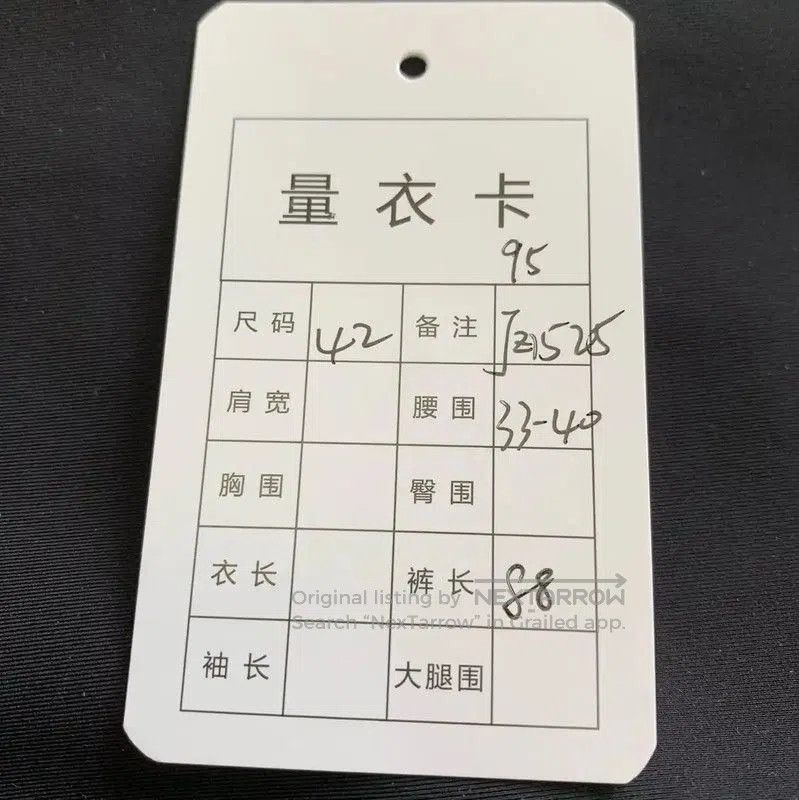 量衣卡
95
尺码 42 备注 JZ1525
肩宽 腰围 33-40
胸围 臀围
衣长 裤长 88
Original listing by NEXTARROW
Search "NexTarrow" in Grailed app.
袖长 大腿围